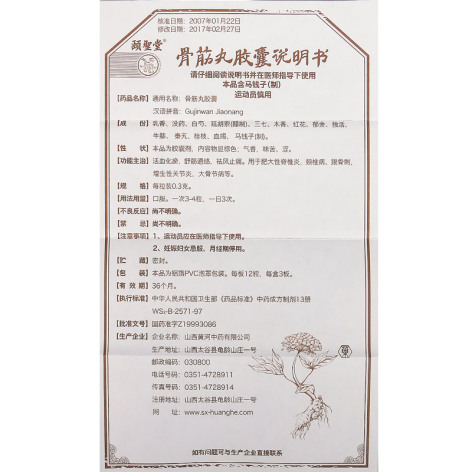 核准日期：2007年01月22日
修改日期：2017年02月27日
颐圣堂
骨筋丸胶囊说明书
请仔细阅读说明书并在医师指导下使用
本品含马钱子(制)
运动员慎用
【药品名称】通用名称：骨筋丸胶囊
汉语拼音：Gujinwan Jiaonang
【成　　份】乳香、没药、白芍、延胡索(醋制)、三七、木香、红花、郁金、独活、
牛膝、秦艽、桂枝、血竭、马钱子(制)。
【性　　状】本品为胶囊剂，内容物显棕色；气香，味苦、涩。
【功能主治】活血化瘀，舒筋通络，祛风止痛。用于肥大性脊椎炎、颈椎病、跟骨刺、
增生性关节炎、大骨节病等。
【规　　格】每粒装0.3克。
【用法用量】口服。一次3-4粒，一日3次。
【不良反应】尚不明确。
【禁　　忌】尚不明确。
【注意事项】1、运动员应在医师指导下使用。
2、妊娠妇女忌服，月经期停用。
【贮　　藏】密封。
【包　　装】本品为铝箔PVC泡罩包装。每板12粒，每盒3板。
【有 效 期】36个月。
【执行标准】中华人民共和国卫生部《药品标准》中药成方制剂13册
WS₃-B-2571-97
【批准文号】国药准字Z19993086
【生产企业】企业名称：山西黄河中药有限公司
生产地址：山西太谷县龟龄山庄一号
邮政编码：030800
电话号码：0351-4728911
传真号码：0351-4728914
注册地址：山西太谷县龟龄山庄一号
网　　址：www.sx-huanghe.com
如有问题可与生产企业直接联系